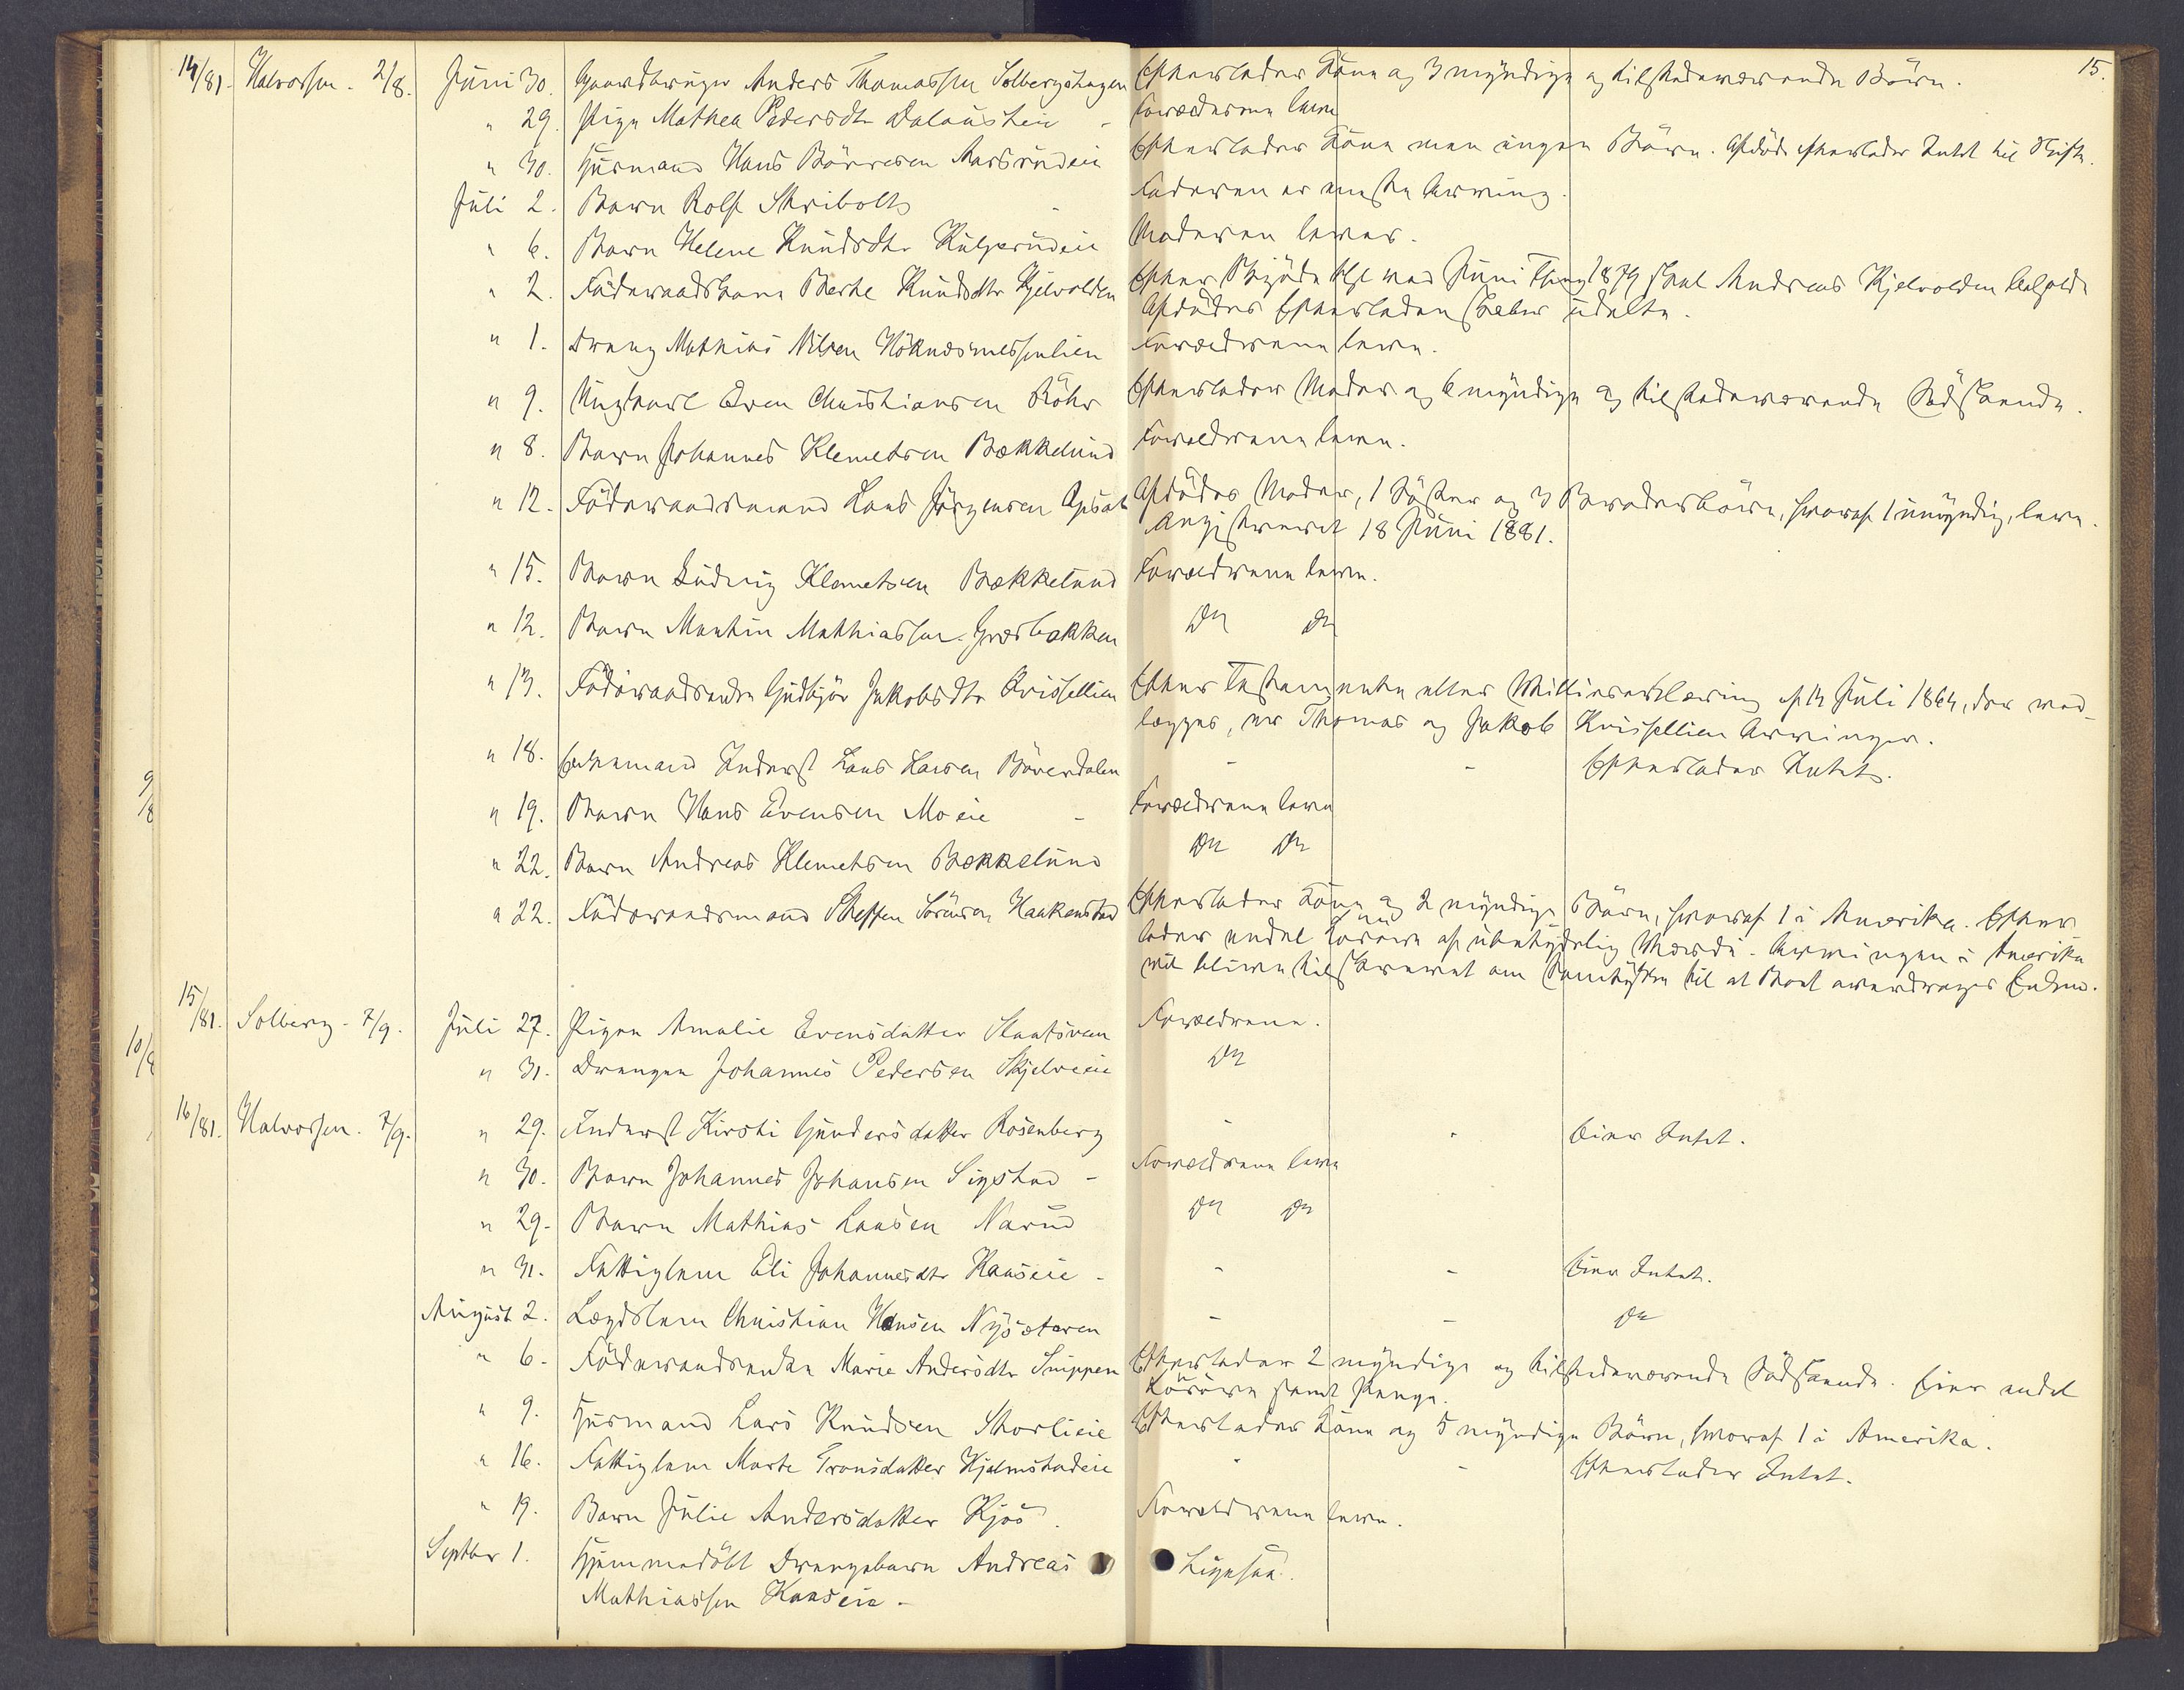 15.
14/81. Halvorsen. 2/8. Juni 30. Gaardbruger Anders Thomassen Solbergshagen Efterlader Kone og 3 myndige og tilstedeværende Börn.
" 29. Pige Mathea Pedersdtr Dalaustein - Forældrene leve
" 30. Husmand Hans Börresen Aarsrudeie Efterlader Kone men ingen Börn. Afdöde efterlader Intet til Skifte.
Juli 2. Barn Rolf Skribolt - Faderen er eneste Arving.
" 6. Barn Helene Knudsdtr Kulperudeie Moderen lever.
" 2. Föderaadskone Berthe Knudsdtr Kjelvolden Efter Skjöde tgl ved Juni Thing 1879 skal Andreas Kjelvolden beholde
Afdödes Efterladenskaber udelte.
" 1. Dreng Mathias Nilsen Höknesmesselien Forældrene leve.
" 9. Ungkarl Even Christiansen Röhr Efterlader Moder og 6 myndige og tilstedeværende Södskende.
" 8. Barn Johannes Klemetsen Bækkelund Forældrene leve.
" 12. Föderaadsmand Lars Jörgensen Opsat Afdödes Moder, 1 Söster og 3 Broderbörn, hvoraf 1 umyndig, leve.
Registreret 18 Juni 1881.
" 15. Barn Ludvig Klemetsen Bækkelund Forældrene leve.
" 12. Barn Martin Mathiassen Græsbakken Do Do
" 13. Föderaadsenke Gudbjör Jakobsdtr Kvissellien Efter Testamente eller Willieserklæring af 14 Juli 1864, der ved-
lægges, er Thomas og Jakob Kvissellien Arvinger.
" 18. Enkemand Inderst Lars Larsen Böverdalen - - Efterlader Intet.
" 19. Barn Hans Evensen Moeie - Forældrene leve
" 22. Barn Andreas Klemetsen Bækkelund Do Do
" 22. Föderaadsmand Steffen Sörensen Haakenstad Efterlader Kone og 2 myndige Börn, hvoraf 1 i Amerika. Efter
lader endel Lösöre af ubetydelig Værdi. Arvingen i Amerika
vil blive tilskrevet om Samtykke til at Boet overdrages Enken.
15/81. Solberg. 7/9. Juli 27. Pigen Amalie Evensdatter Staatsveen Forældrene.
" 31. Drengen Johannes Pedersen Skjelveeie Do
16/81. Halvorsen. 7/9. " 29. Inderst Kirsti Gundersdatter Rosenberg - - Eier Intet.
" 30. Barn Johannes Johansen Sigstad - Forældrene leve
" 29. Barn Mathias Larsen Narud Do Do
" 31. Fattiglem Eli Johannesdtr Kaaseie - - - Eier Intet.
August 2. Lægdslem Christian Hansen Nysæteren - - Do
" 6. Föderaadsenke Marie Andersdtr Snippen Efterlader 2 myndige og tilstedeværende Södskende. Eier endel
Lösöre samt Penge.
" 9. Husmand Lars Knudsen Storlieie Efterlader Kone og 5 myndige Börn, hvoraf 1 i Amerika.
" 16. Fattiglem Marte Tronsdatter Hjelmstadeie - - Efterlader Intet.
" 19. Barn Julie Andersdatter Kjös. Forældrene leve.
Septbr 1. Hjemmedöbt Drengebarn Andreas Ligesaa.
Mathiassen Kaaseie -
9/8
10/8